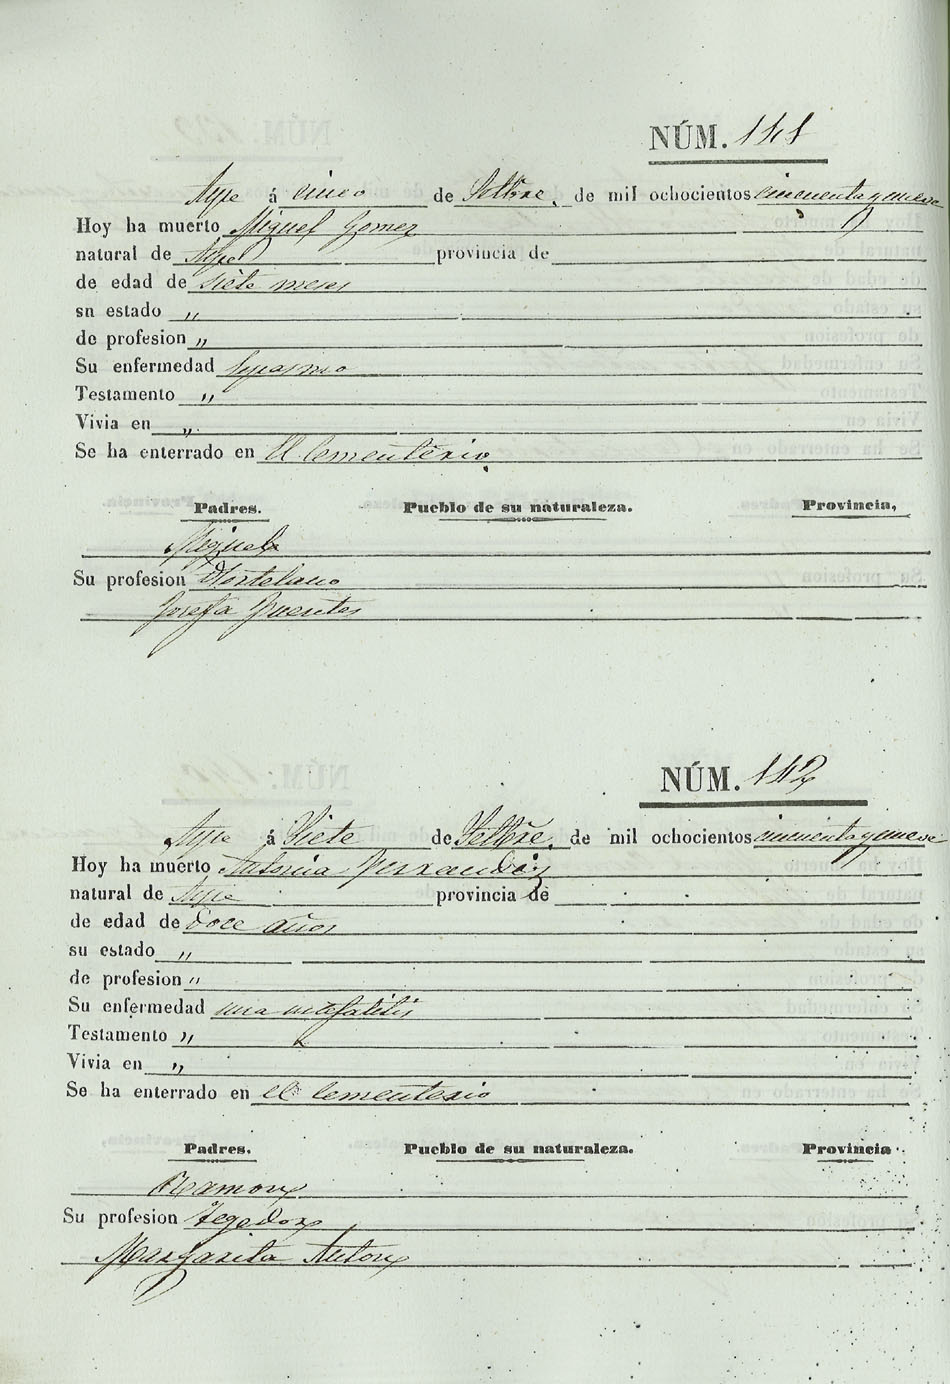 NÚM. 141
Aspe á cinco de Setbre. de mil ochocientos cincuenta y nueve
Hoy ha muerto Miguel Gomez
natural de Aspe provincia de
de edad de siete meses
sn estado „
de profesion „
Su enfermedad Espasmo
Testamento „
Vivia en „
Se ha enterrado en El Cementerio
Padres. Pueblo de su naturaleza. Provincia,
Miguel
Su profesion Hortelano
Josefa Puentes
NÚM. 142
Aspe á Siete de Setbre. de mil ochocientos cincuenta y nueve
Hoy ha muerto Antonia
natural de Aspe provincia de
de edad de doce años
su estado „
de profesion „
Su enfermedad una
Testamento „
Vivia en „
Se ha enterrado en el Cementerio
Padres. Pueblo de su naturaleza. Provincia
Ramon
Su profesion Tegedor
Margarita Anton